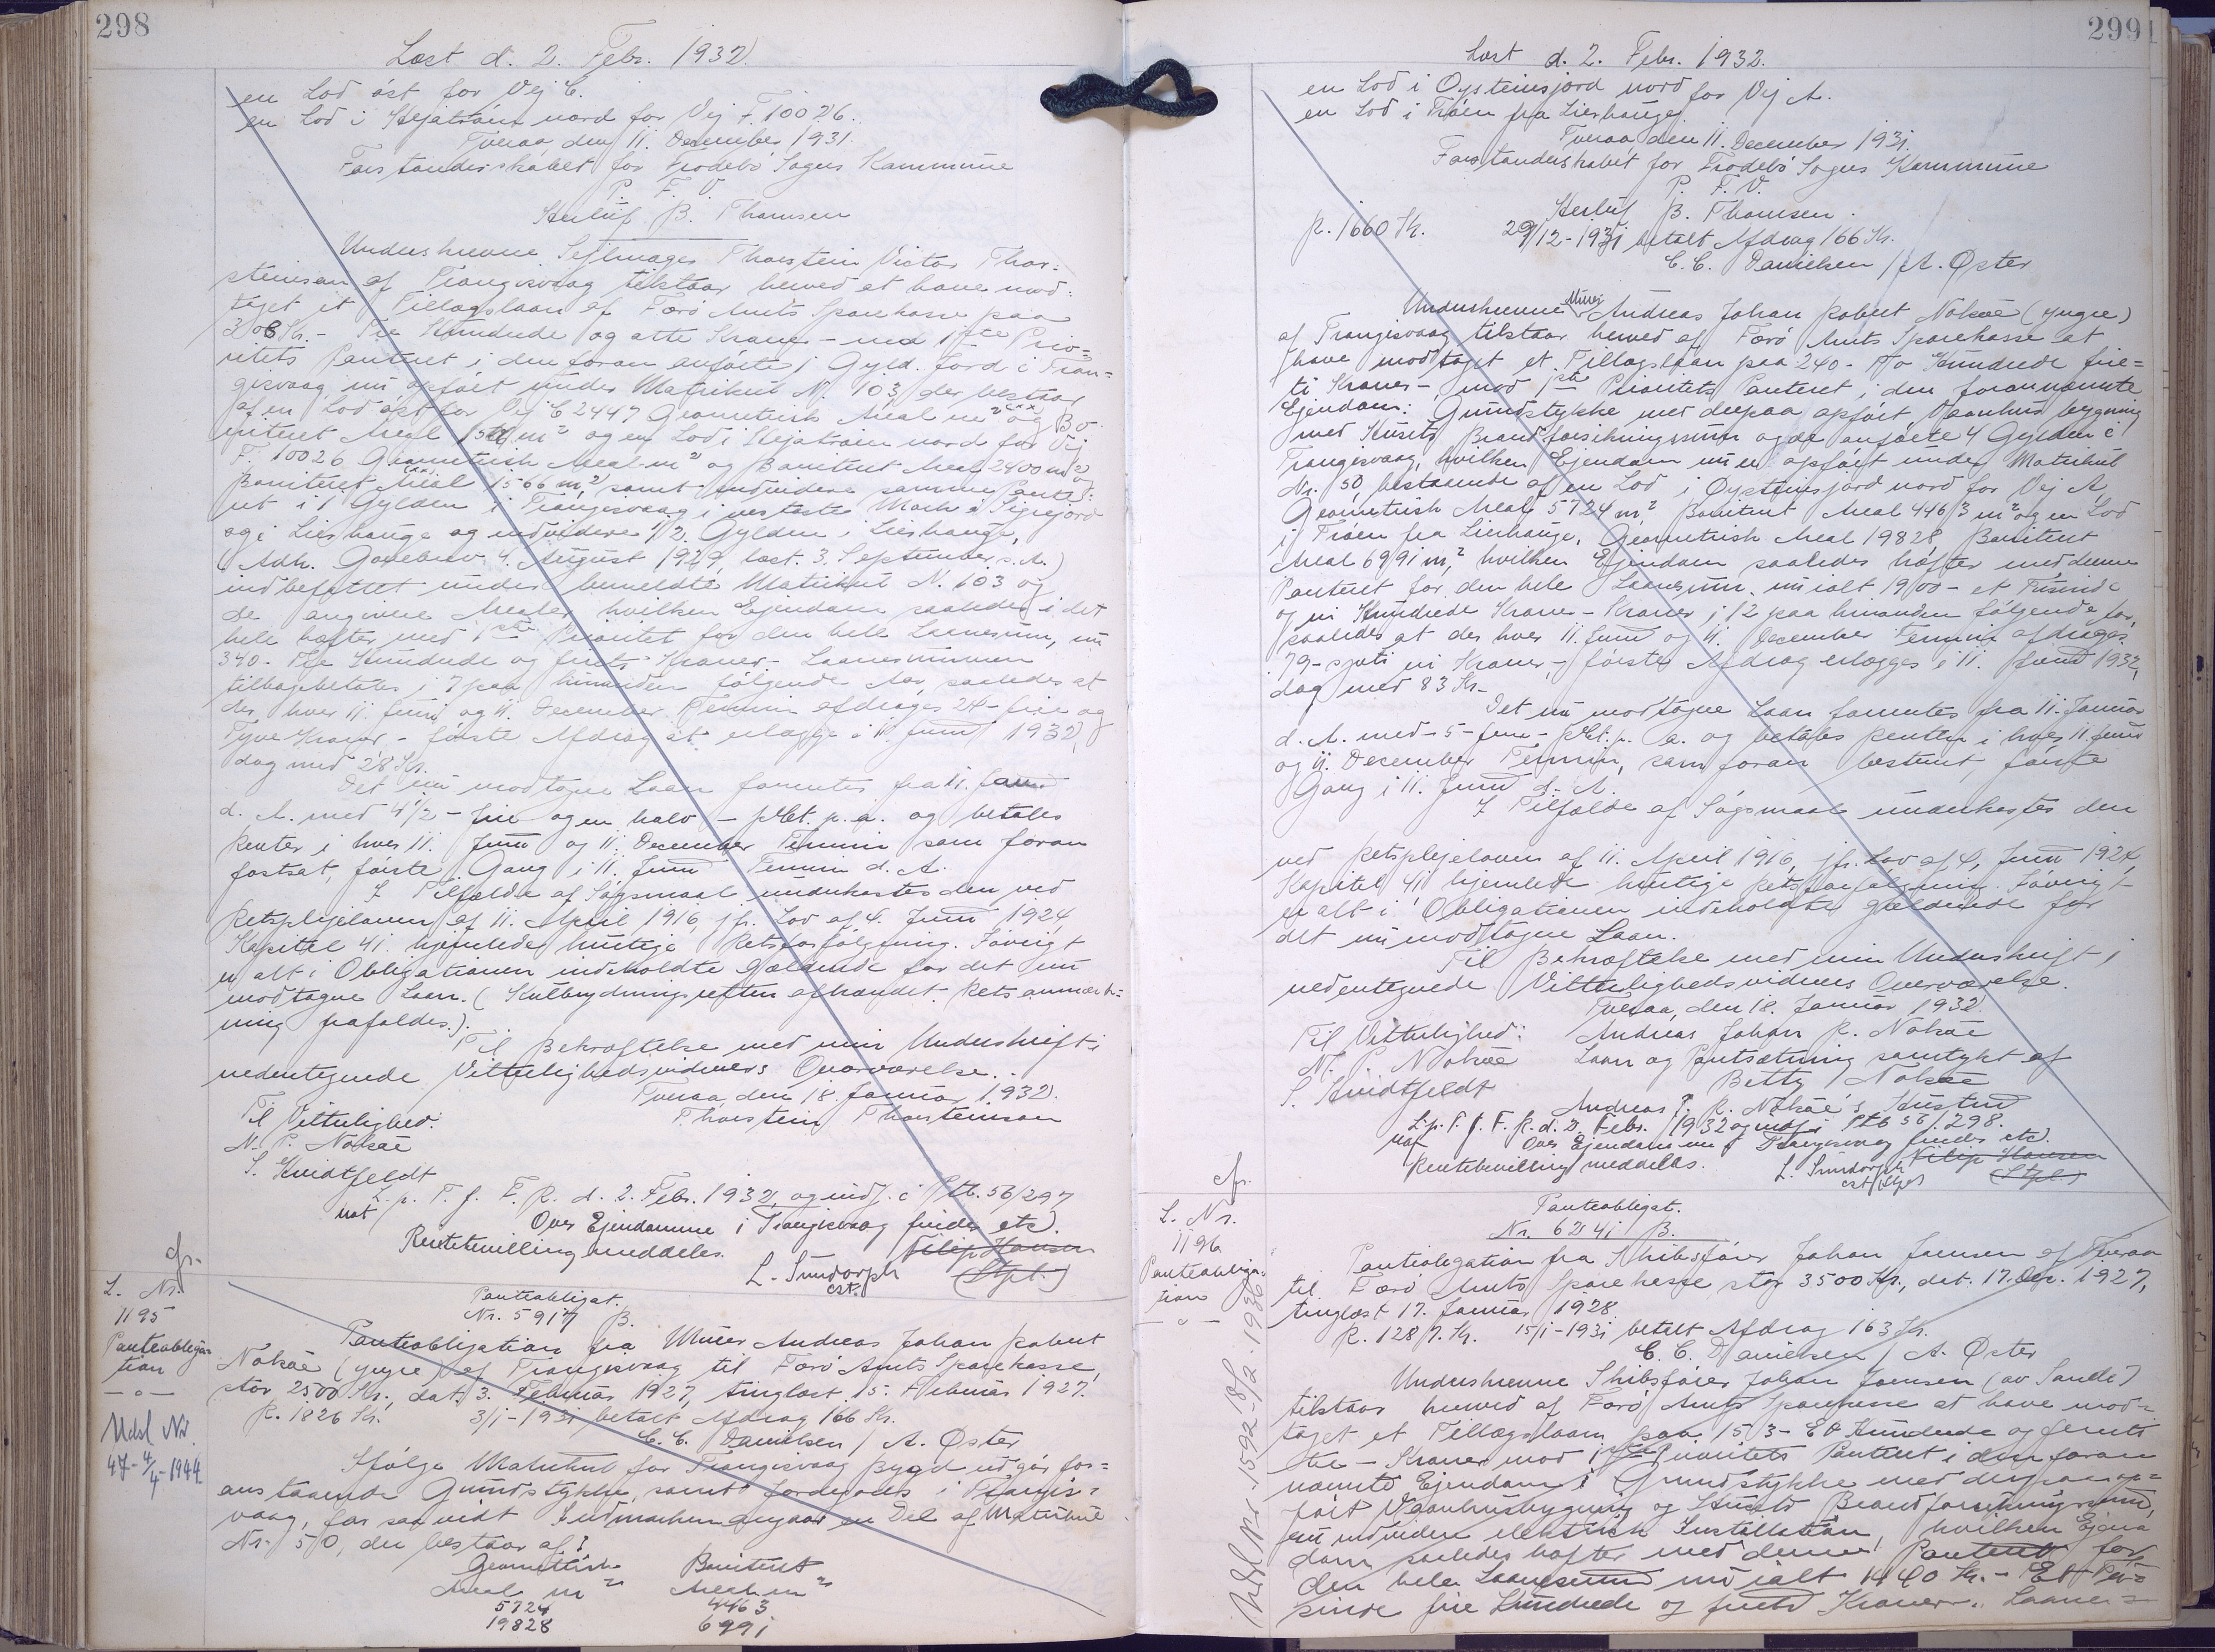 298
Læst d. 2. Febr. 1932.
en Lod øst for Vej C.
en Lod i Hejatrøin nord for Vej F. 10026.
Tveraa, den 11. December 1931.
Forstanderskabet for Frodebø Sogns Kommune
P. F. V.
Herluf B. Thomsen
Underskrevne Sejlmager Thorstein Victor Thor-
steinson af Trangisvaag tilstaar herved at have mod-
taget et Tillægslaan af Færø Amts Sparekasse paa
308 Kr. - Tre Hundrede og otte Kroner - mod 1ste Prio-
ritets Panteret i den foran anførte 1 Gyld. Jord i Tran-
gisvaag, nu opført under Matrikul N. 103 der bestaar
af en Lod øst for Vej C 2447 Geometrisk Areal m² og Bo-
niteret Areal m² og en Lod i Hejatrøin nord for Vej
F. 10026 Geometrisk Areal m² og Boniteret Areal 2400 m² og
Boniteret Areal 1566 m² samt endvidere samme Pante-
ret i 1 Gylden i Trangisvaag i vesteste Mark i
og i Lierhauge og endvidere 1/2 Gylden i Lierhauge,
(Adk. Gavebrev 4. August 1929, læst 3. September s. A.)
indbefattet under bemeldte Matrikul N. 103 og
de angivne Arealer, hvilken Ejendom saaledes i det
hele hæfter med 1ste Prioritet for den hele Laanesum, nu
340 - Tre Hundrede og firti Kroner - Laanesummen
tilbagebetales i 7 paa hinanden følgende Aar, saaledes at
der hver 11. Juni og 11. December Termin afdrages 24 - fire og
Tyve Kroner - første Afdrag at erlægge i 11. Juni 1932,
dog med 28 Kr.
Det nu modtagne Laan forrentes fra 11. Januar
d. A. med 4 1/2 - fire og en halv - pCt. p. a. og betales
Renter i hver 11. Juni og 11. December Termin som foran
fastsat, første Gang i 11. Juni Termin d. A.
I Tilfælde af Søgsmaal underkastes den ved
Retsplejeloven af 11. April 1916, jfr. Lov af 4. Juni 1924,
Kapitel 41. hjemlede hurtige Retsforfølgning. Iøvrigt
er alt i Obligationen indeholdte gældende for det nu
modtagne Laan. (Kulbrydningsretten afhændet. Retsanmærk-
ning frafaldes.).
Til Bekræftelse med min Underskrift i
nedentegnede Vitterlighedsvidners Overværelse.
Tveraa, den 18. Januar 1932.
Til Vitterlighed: Thorstein Thorsteinson
N. P. Nolsøe
S. Hvidtfeldt
L. p. T. f. F. R. d. 2. Febr. 1932, og indf. i Ptb. 56/297
not Over Ejendomme i Trangisvaag findes etc.
Rentebevilling meddeles. Filip Hansen
L. Sundorph (Stpl.)
cst.
cfr.
L. Nr.
1195
Panteobliga-
tion
— o —
Udsl Nr.
47 - 4/4 - 1944
Panteobligat.
Nr. 5917 B.
Panteobligation fra Murer Andreas Johan Robert
Nolsøe (yngre) af Trangisvaag til Færø Amts Sparekasse,
stor 2500 Kr., dat. 3. Februar 1927, tinglæst 15. Februar 1927.
R. 1826 Kr. 3/1-1931 betalt Afdrag 166 Kr.
C. C. Danielsen / A. Øster
Ifølge Matrikul for Trangisvaag Bygd udgør for-
anstaaende Grundstykke, samt Jordegods i Trangis-
vaag, for saavidt Indmarken angaar en Del af Matrikul
Nr. 50, der bestaar af:
Geometrisk Boniteret
Areal m² Areal m²
5724 4463
19828 6991
299
Læst d. 2. Febr. 1932.
en Lod i Oysteinsjord nord for Vej A.
en Lod i Trøin fra Lierhauge.
Tveraa, den 11. December 1931.
Forstanderskabet for Frodebø Sogns Kommune
P. F. V.
Herluf B. Thomsen.
R. 1660 Kr. 29/12-1931 betalt Afdrag 166 Kr.
C. C. Danielsen / A. Øster
Underskrevne Murer Andreas Johan Robert Nolsøe (yngre)
af Trangisvaag tilstaar herved af Færø Amts Sparekasse at
have modtaget et Tillægslaan paa 240 - To Hundrede fire-
ti Kroner - mod 1ste Prioritets Panteret i den forannævnte
Ejendom: Grundstykke med derpaa opført Vaanhusbygning
med Husets Brandforsikringssum og de anførte 4 Gylden i
Trangisvaag, hvilken Ejendom nu er opført under Matrikul
Nr. 50 bestaaende af en Lod i Oysteinsjord nord for Vej A
Geometrisk Areal 5724 m² Boniteret Areal 4463 m² og en Lod
i Trøen fra Lierhauge, Geometrisk Areal 19828, Boniteret
Areal 6991 m², hvilken Ejendom saaledes hæfter med denne
Panteret for den hele Laanesum, nu ialt 1900 - et Tusinde
og ni Hundrede Kroner - Kroner i 12 paa hinanden følgende for,
saaledes at der hver 11. Juni og 11. December Termin afdrages
79 - syvti ni Kroner, - første Afdrag erlægges i 11. Juni 1932,
dog med 83 Kr. -
Det nu modtagne Laan forrentes fra 11. Januar
d. A. med - 5 - fem - pCt. p. a. og betales Renter i hver 11. Juni
og 11. December Termin, som foran bestemt, første
Gang i 11. Juni d. A.
I Tilfælde af Søgsmaal underkastes den
ved Retsplejeloven af 11. April 1916, jfr. Lov af 4. Juni 1924,
Kapitel 41 hjemlede hurtige Retsforfølgning. Iøvrigt
er alt i Obligationen indeholdte gældende for
det nu modtagne Laan.
Til Bekræftelse med min Underskrift i
nedentegnede Vitterlighedsvidners Overværelse.
Tveraa, den 18. Januar 1932.
Til Vitterlighed: Andreas Johan R. Nolsøe
N. P. Nolsøe Laan og Pantsætning samtykt af
S. Hvidtfeldt Betty Nolsøe
Andreas J. R. Nolsøe's Hustru
L. p. T. f. F. R. d. 2. Febr. 1932 og indf. i Ptb 56/298.
not Over Ejendomme i Trangisvaag findes etc.
Rentebevilling meddeles. L. Sundorph Filip Hansen
cst. (Stpl.)
cfr.
L. Nr.
1196
Panteobliga-
tion
— o —
Udsl Nr. 1592 - 18/2 - 1936
Panteobligat.
Nr. 6241 B.
Panteobligation fra Skibsfører Johan Joensen af Tveraa
til Færø Amts Sparekasse stor 3500 Kr., dat. 17. Dcr. 1927,
tinglæst 17. Januar 1928
R. 1287. Kr. 15/1-1931 betalt Afdrag 163 Kr.
C. C. Danielsen / A. Øster
Underskrevne Skibsfører Johan Joensen (av Sandi)
tilstaar herved af Færø Amts Sparekasse at have mod-
taget et Tillægslaan paa 153 - Et Hundrede og femti
tre - Kroner mod 1ste Prioritets Panteret i den foran
nævnte Ejendom: Grundstykke med derpaa op-
ført Vaanhusbygning og Husets Brandforsikringssum,
endvidere elektrisk Installation, hvilken Ejen-
dom saaledes hæfter med denne Panteret for
den hele Laanesum nu ialt 1440 Kr. - Et Tu-
sinde fire Hundrede og firti Kroner. Laane-